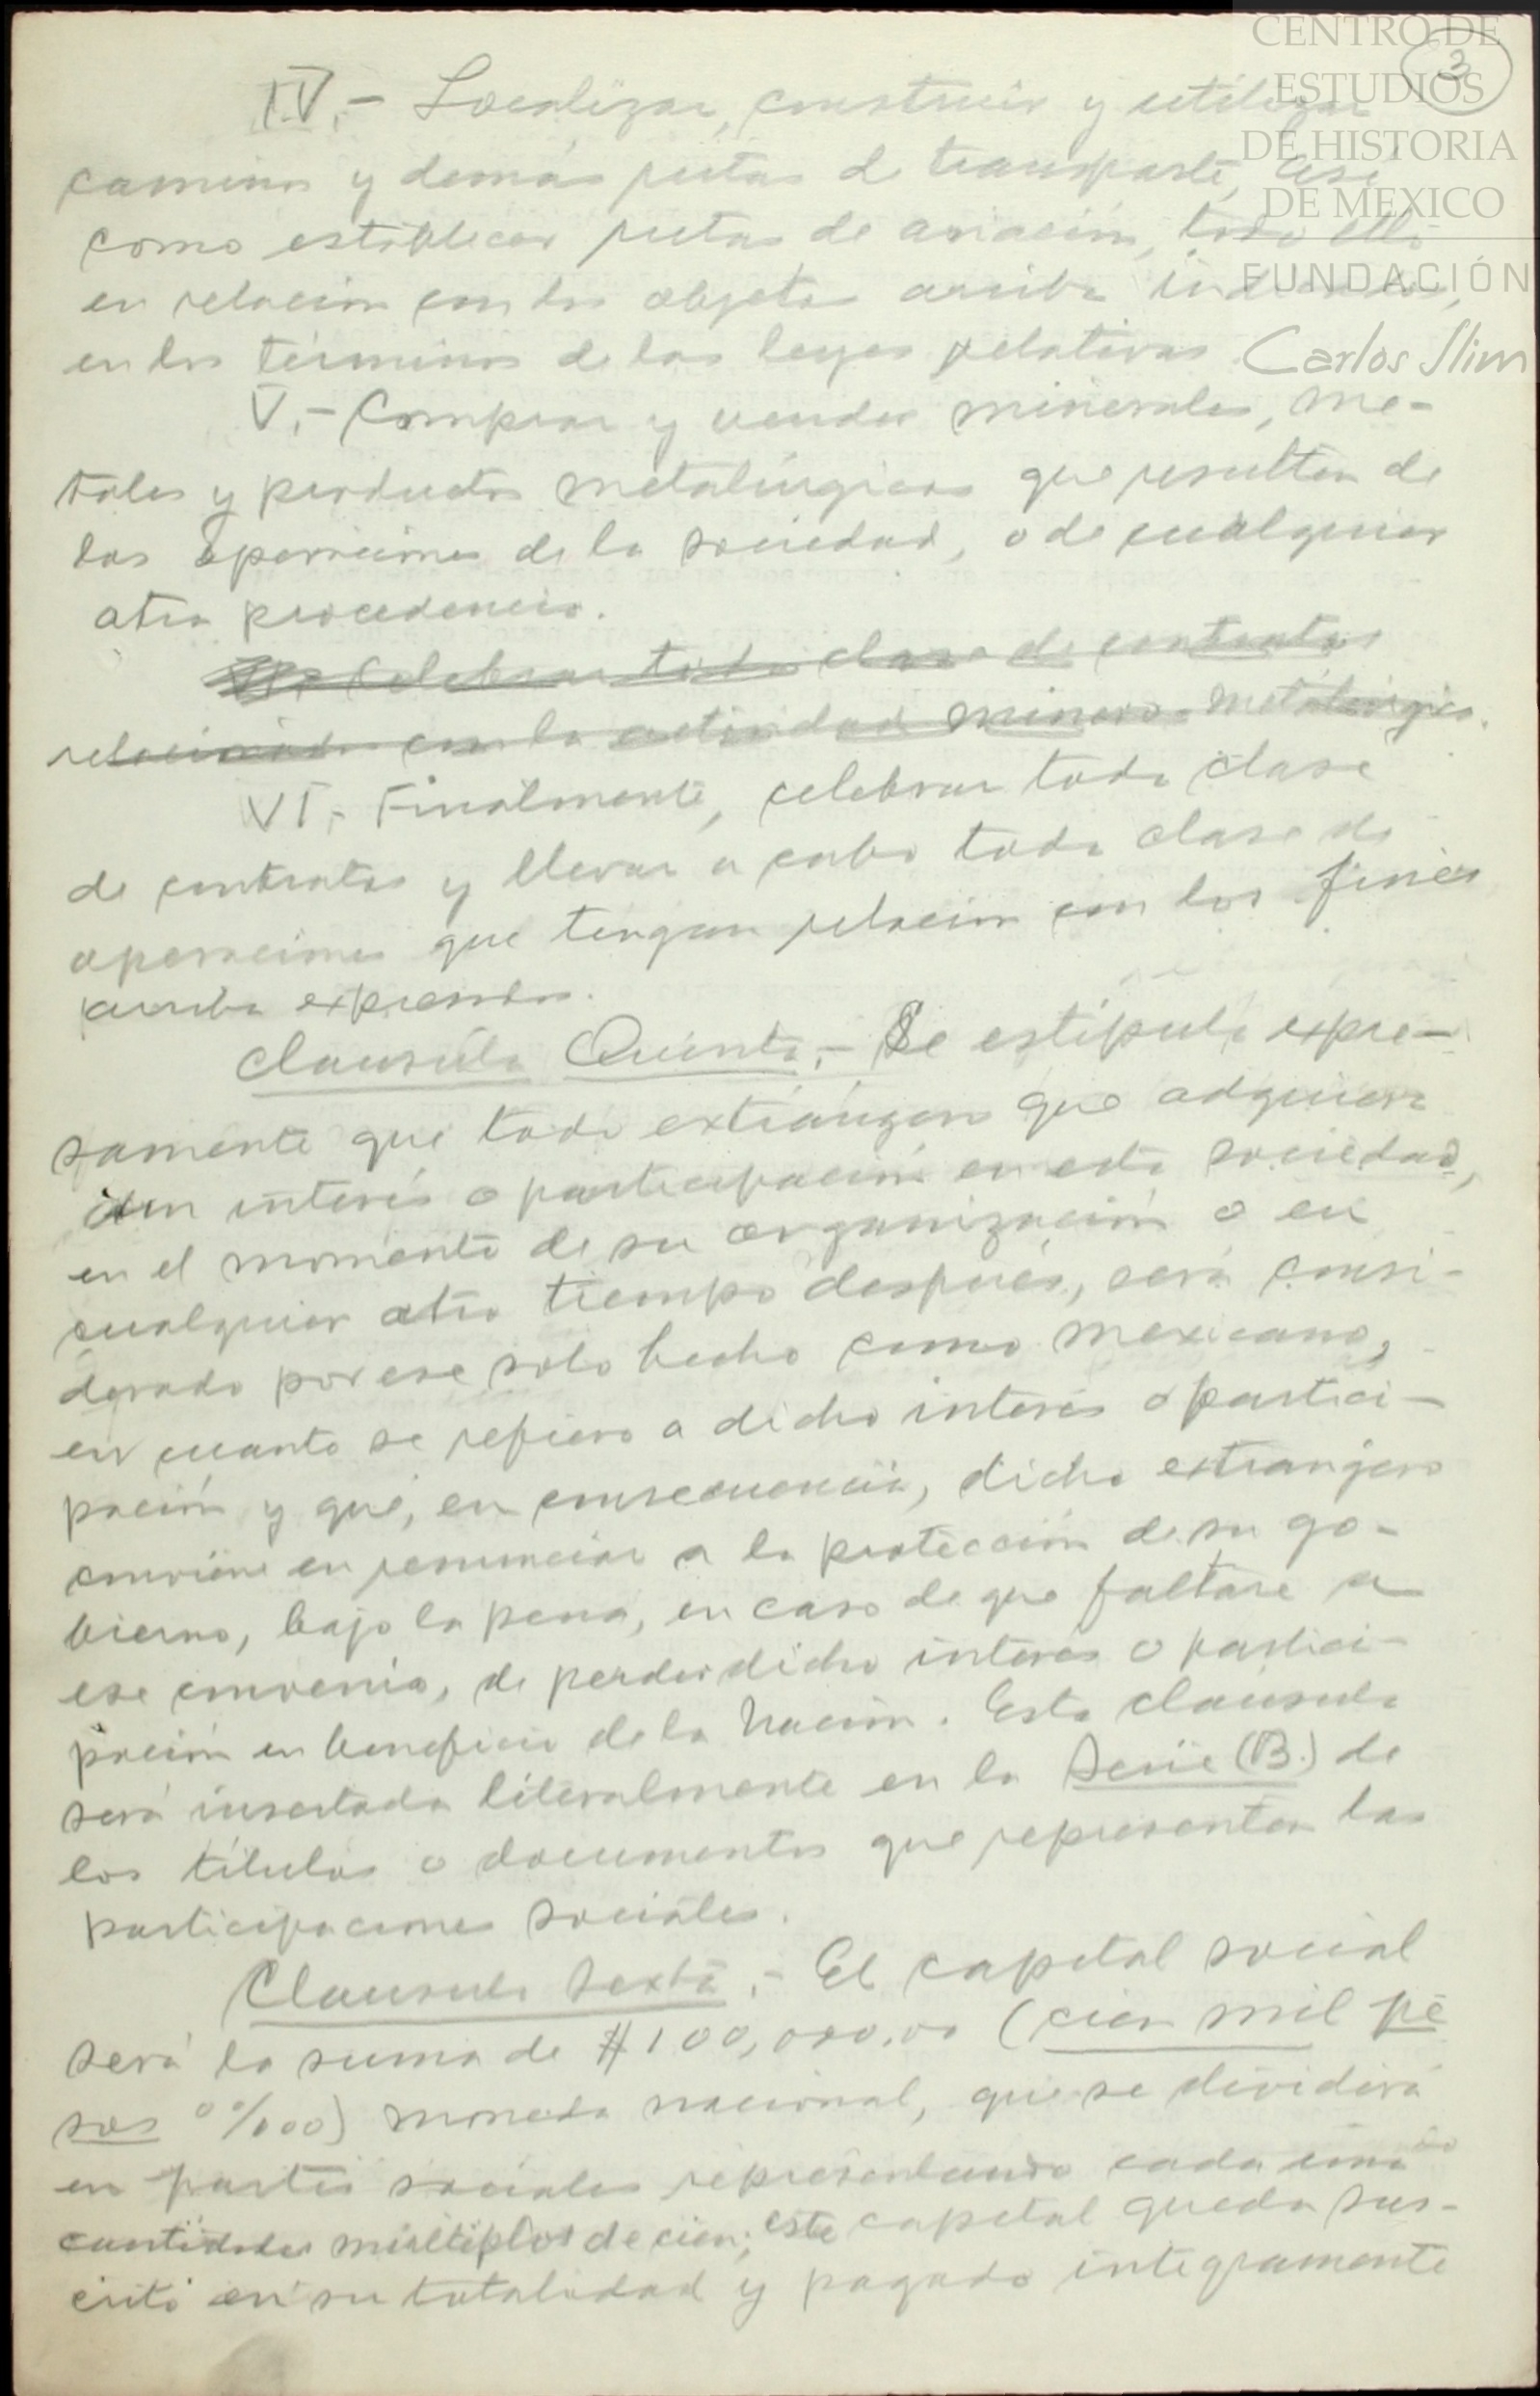 CENTRO DE
ESTUDIOS
DE HISTORIA
DE MEXICO
FUNDACIÓN
Carlos Slim
3
IV.- Localizar, construir y utilizar
caminos y demás rutas de transporte, así
como establecer rutas de aviación, todo ello
en relación con los objetos arriba indicados,
en los términos de las leyes relativas
V.- Comprar y vender minerales, me-
tales y productos metalúrgicos que resulten de
las operaciones de la sociedad, o de cualquier
otra procedencia.
Celebrar toda clase de contratos
relacionados con la actividad minero-metalúrgica.
VI.- Finalmente, celebrar toda clase
de contratos y llevar a cabo toda clase de
operaciones que tengan relación con los fines
arriba expresados.
Clausula Quinta.- Se estipula expre-
samente que todo extranjero que adquiera
un interés o participación en esta sociedad,
en el momento de su organización o en
cualquier otro tiempo después, será consi-
derado por ese solo hecho como mexicano,
en cuanto se refiere a dicho interés o partici-
pación y que, en consecuencia, dicho extranjero
conviene en renunciar a la protección de su go-
bierno, bajo la pena, en caso de que faltare a
ese convenio, de perder dicho interés o partici-
pación en beneficio de la Nación. Esta clausula
será insertada literalmente en la Serie (B.) de
los títulos o documentos que representen las
participaciones sociales.
Clausula Sexta.- El capital social
será la suma de $100,000.00 (cien mil pe
sos 00/100) moneda nacional, que se dividirá
en partes sociales representando cada una
cantidades múltiplos de cien; este capital queda sus-
crito en su totalidad y pagado integramente